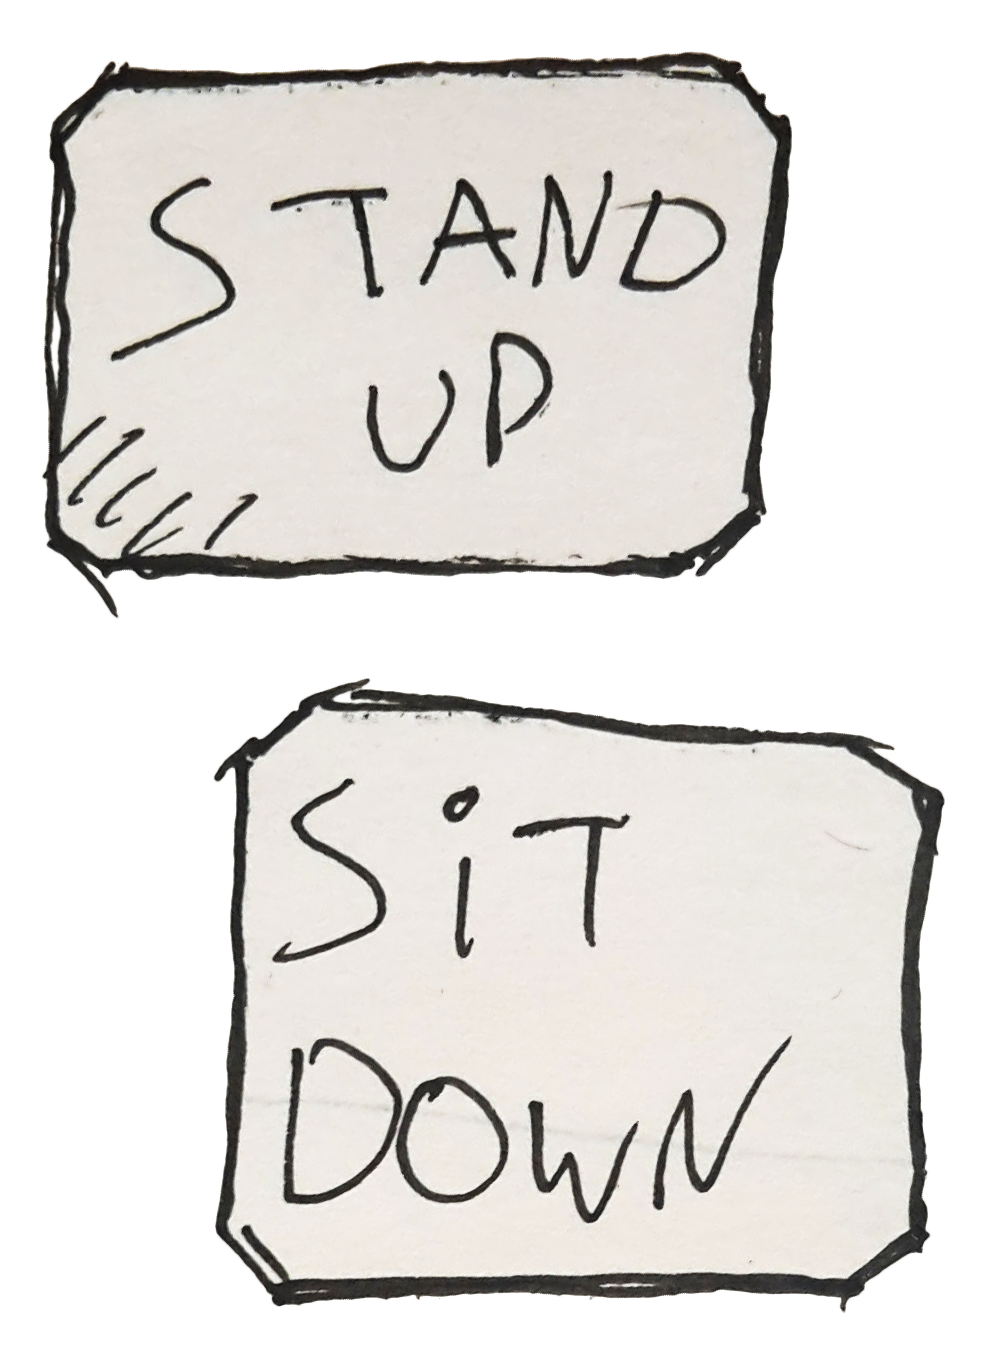 STAND
UP
SiT
DOWN